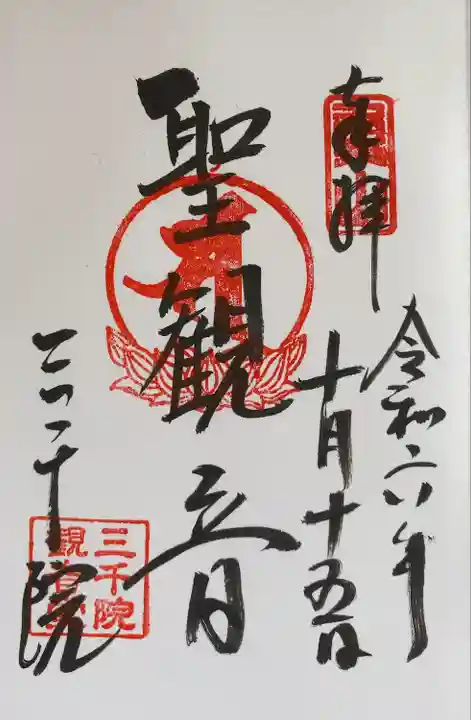 奉拝
令和六年
十月十五日
聖観音
三千院
三千院